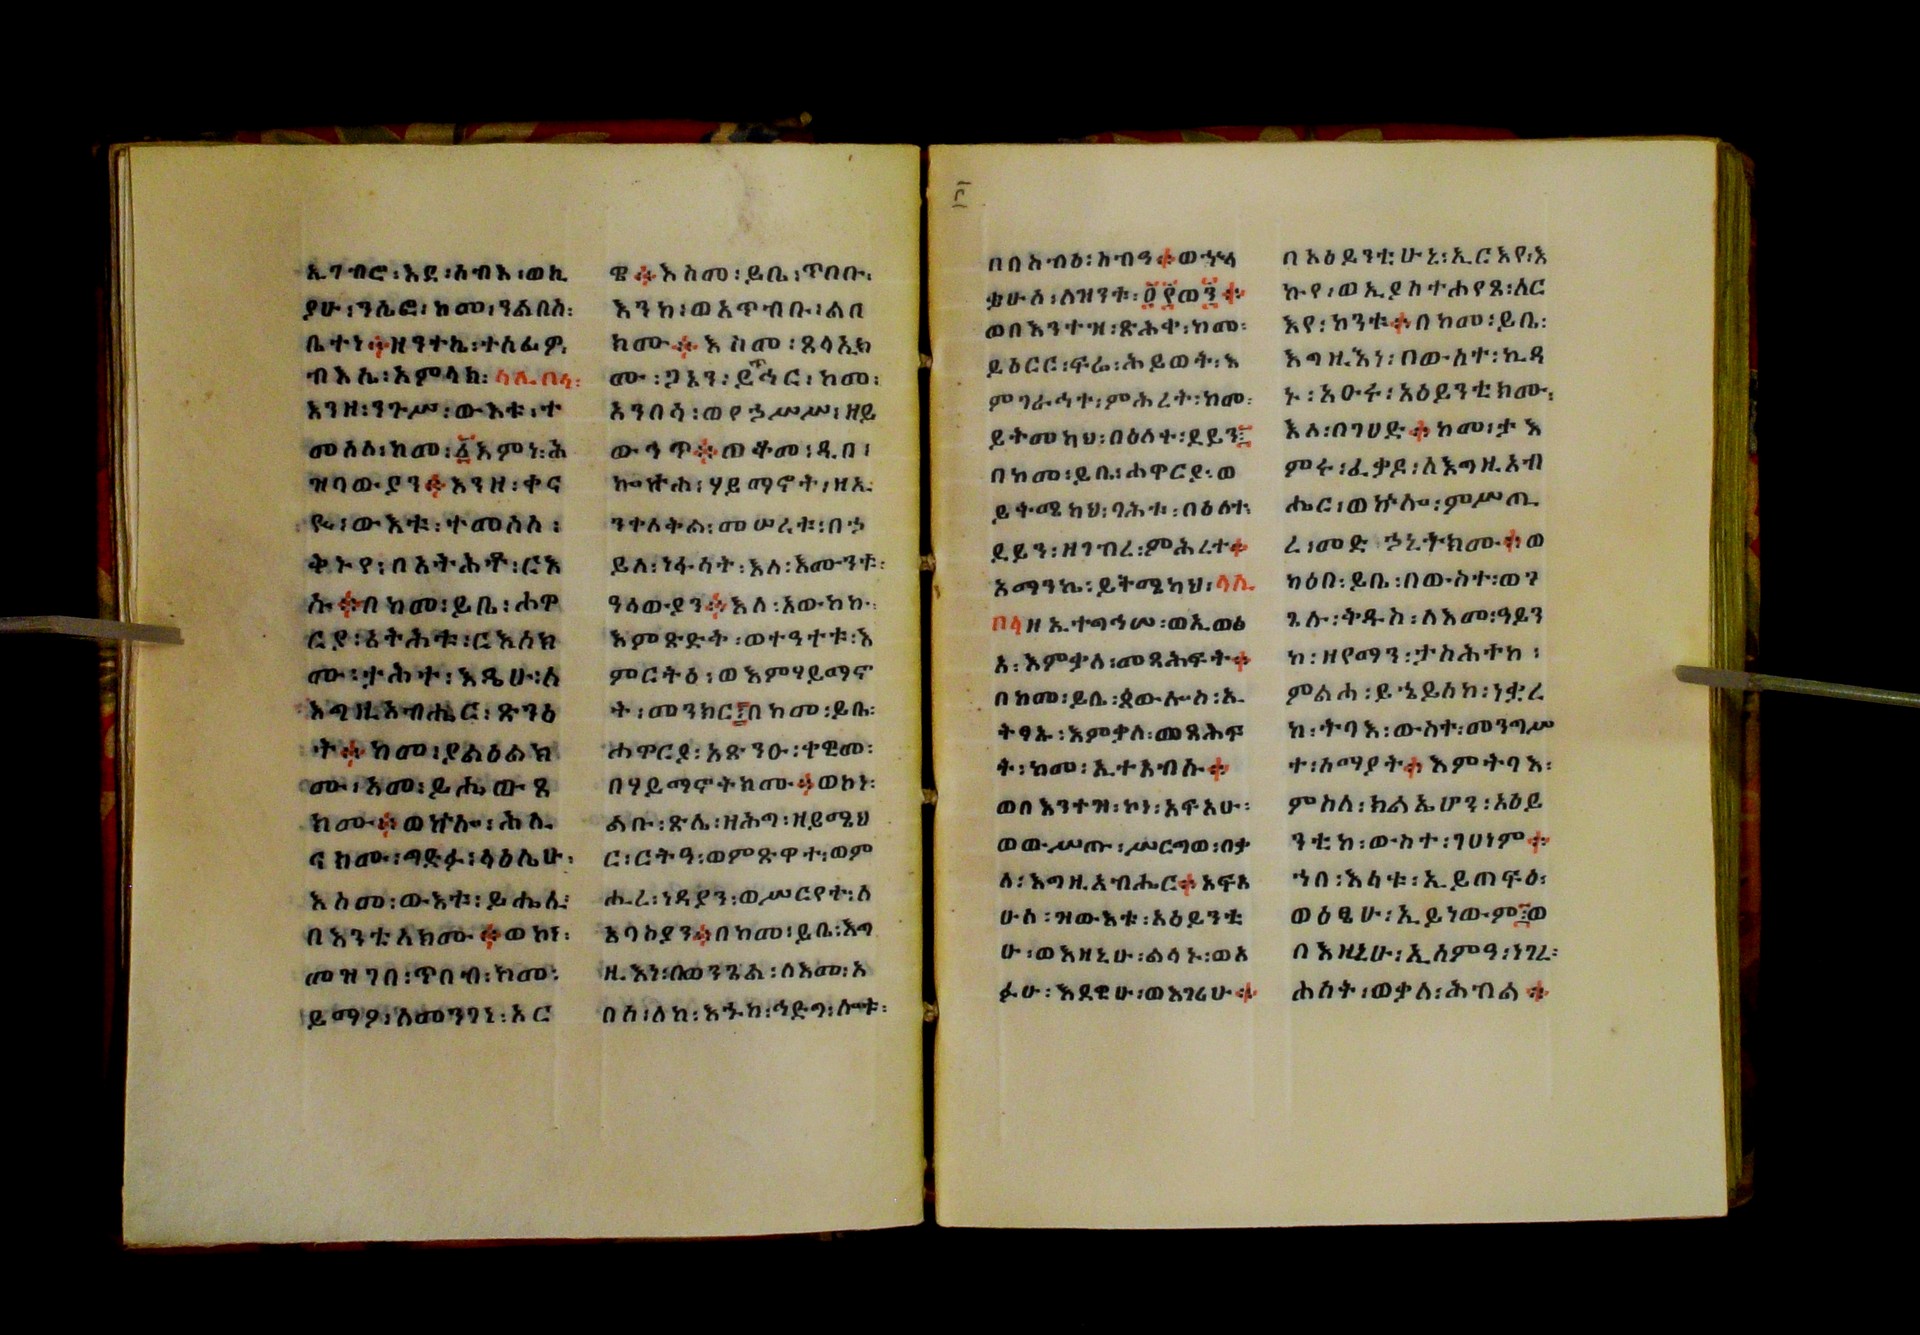 ኢገብሮ፡እደ፡ሰብእ፡ወኪ
ያሁ፡ንሴፎ፡ከመ፡ንልበስ፡
ቤተነ፨ዘንተኬ፡ተስፊዎ፡
ብእሲ፡አምላክ፡
እንዘ፡ንጉሥ፡ውእቱ፡ተ
መሰለ፡ከመ፡፩እምነ፡ሕ
ዝባውያን፨እንዘ፡ቀና
ዊ፡ውእቱ፡ተመሰለ፡
ቅኑየ፡በአትሕቶ፡ርእ
ሱ፨በከመ፡ይቤ፡ሐዋ
ርያ፡ዕትሕቱ፡ርእስክ
ሙ፡ታሕተ፡እዴሁ፡ለ
እግዚአብሔር፡ጽንዕ
ት፨ከመ፡ያልዕልክ
ሙ፡አመ፡ይሔውጸ
ክሙ፨ወኵሎ፡ሕሊ
ናክሙ፡ግድፉ፡ላዕሌሁ፡
እስመ፡ውእቱ፡ይሔሊ፡
በእንቲአክሙ፨ወከነ፡
መዝገበ፡ጥበብ፡ከመ፡
ይማዖ፡ለመንገነ፡አር
ዌ፨እስመ፡ይቤ፡ጥበቡ፡
እንከ፡ወአጥብቡ፡ልበ
ክሙ፨እስመ፡ጸላኢክ
ሙ፡ጋኔን፡ይጥኅር፡ከመ፡
አንበሳ፡ወየኃሥሥ፡ዘይ
ውኅጥ፨ጠቆመ፡ዲበ፡
ኰኵሐ፡ሃይማኖት፡ዘኢ
ንተለትል፡መሠረቱ፡በኃ
ይለ፡ነፋሳት፡እለ፡እሙንቱ፡
ዓላውያን፨እለ፡አውከኩ፡
እምጽድቅ፡ወተዓተቱ፡እ
ምርትዕ፡ወእምሃይማኖ
ት፡መንክር፡በከመ፡ይቤ፡
ሐዋርያ፡አጽንዑ፡ተዊመ፡
በሃይማኖትክሙ፨ወኮነ፡
ልቡ፡ጽሌ፡ዘሕግ፡ዘይሜህ
ር፡ርትዓ፡ወምጽዋተ፡ወም
ሒረ፡ነዳያን፡ወሥርየተ፡ለ
አባስያን፨በከመ፡ይቤ፡እግ
ዚእነ፡በወንጌል፡ለእመ፡አ
በሰ፡ለከ፡እኁከ፡ኅድግ፡ሎቱ፡
በበስብዕ፡ስብዓ፨ወኍላ
ቈሁሰ፡ለዝንቱ፡፬፻ወ፺፨
ወበእንተዝ፡ጽሕቀ፡ከመ፡
ይዕርር፡ፍሬ፡ሕይወት፡እ
ምገራኅተ፡ምሕረት፡ከመ፡
ይትመካህ፡በዕለተ፡ደይን፡
በከመ፡ይቤ፡ሐዋርያ፡ወ
ይትሜካህ፡ባሕቱ፡በዕለተ፡
ደይን፡ዘገብረ፡ምሕረተ፨
አማንኬ፡ይትሜካህ፡
ዘኢተግኅሠ፡ወኢወፅ
አ፡እምቃለ፡መጻሕፍት፨
በከመ፡ይቤ፡ጳውሎስ፡ኢ
ትፃኡ፡እምቃለ፡መጻሕፍ
ት፡ከመ፡ኢተአብሱ፨
ወበእንተዝ፡ኮነ፡አፍአሁ፡
ወውሥጡ፡ሥርግወ፡በቃ
ለ፡እግዚአብሔር፨አፍአ
ሁሰ፡ዝውእቱ፡አዕይንቲ
ሁ፡ወእዘኒሁ፡ልሳኑ፡ወአ
ፉሁ፡እደዊሁ፡ወእገሪሁ፨
በአዕይንቲሁኒ፡ኢርእየ፡እ
ኩየ፡ወኢያስተሐየጸ፡ለር
እየ፡ከንቱ፨በከመ፡ይቤ፡
እግዚእነ፡በውስተ፡ኪዳ
ኑ፡አዑሩ፡አዕይንቲክሙ፡
እለ፡በገሀድ፨ከመ፡ታእ
ምሩ፡ፈቃደ፡ለእግዚአብ
ሔር፡ወኵሎ፡ምሥጢ
ረ፡መድኃኒትክሙ፨ወ
ካዕበ፡ይቤ፡በውስተ፡ወን
ጌሉ፡ቅዱስ፡ለእመ፡ዓይን
ከ፡ዘየማን፡ታስሕተከ፡
ምልሐ፡ይኄይሰከ፡ነቋረ
ከ፡ትባእ፡ውስተ፡መንግሥ
ተ፡ሰማያት፨እምትባእ፡
ምስለ፡ክልኤሆን፡አዕይ
ንቲከ፡ውስተ፡ገሀነም፨
ኀበ፡እሳቱ፡ኢይጠፍእ፡
ወዕፄሁ፡ኢይነውም፡ወ
በእዘኒሁ፡ኢሰምዓ፡ነገረ፡
ሐሰት፡ወቃለ፡ሕብል፨